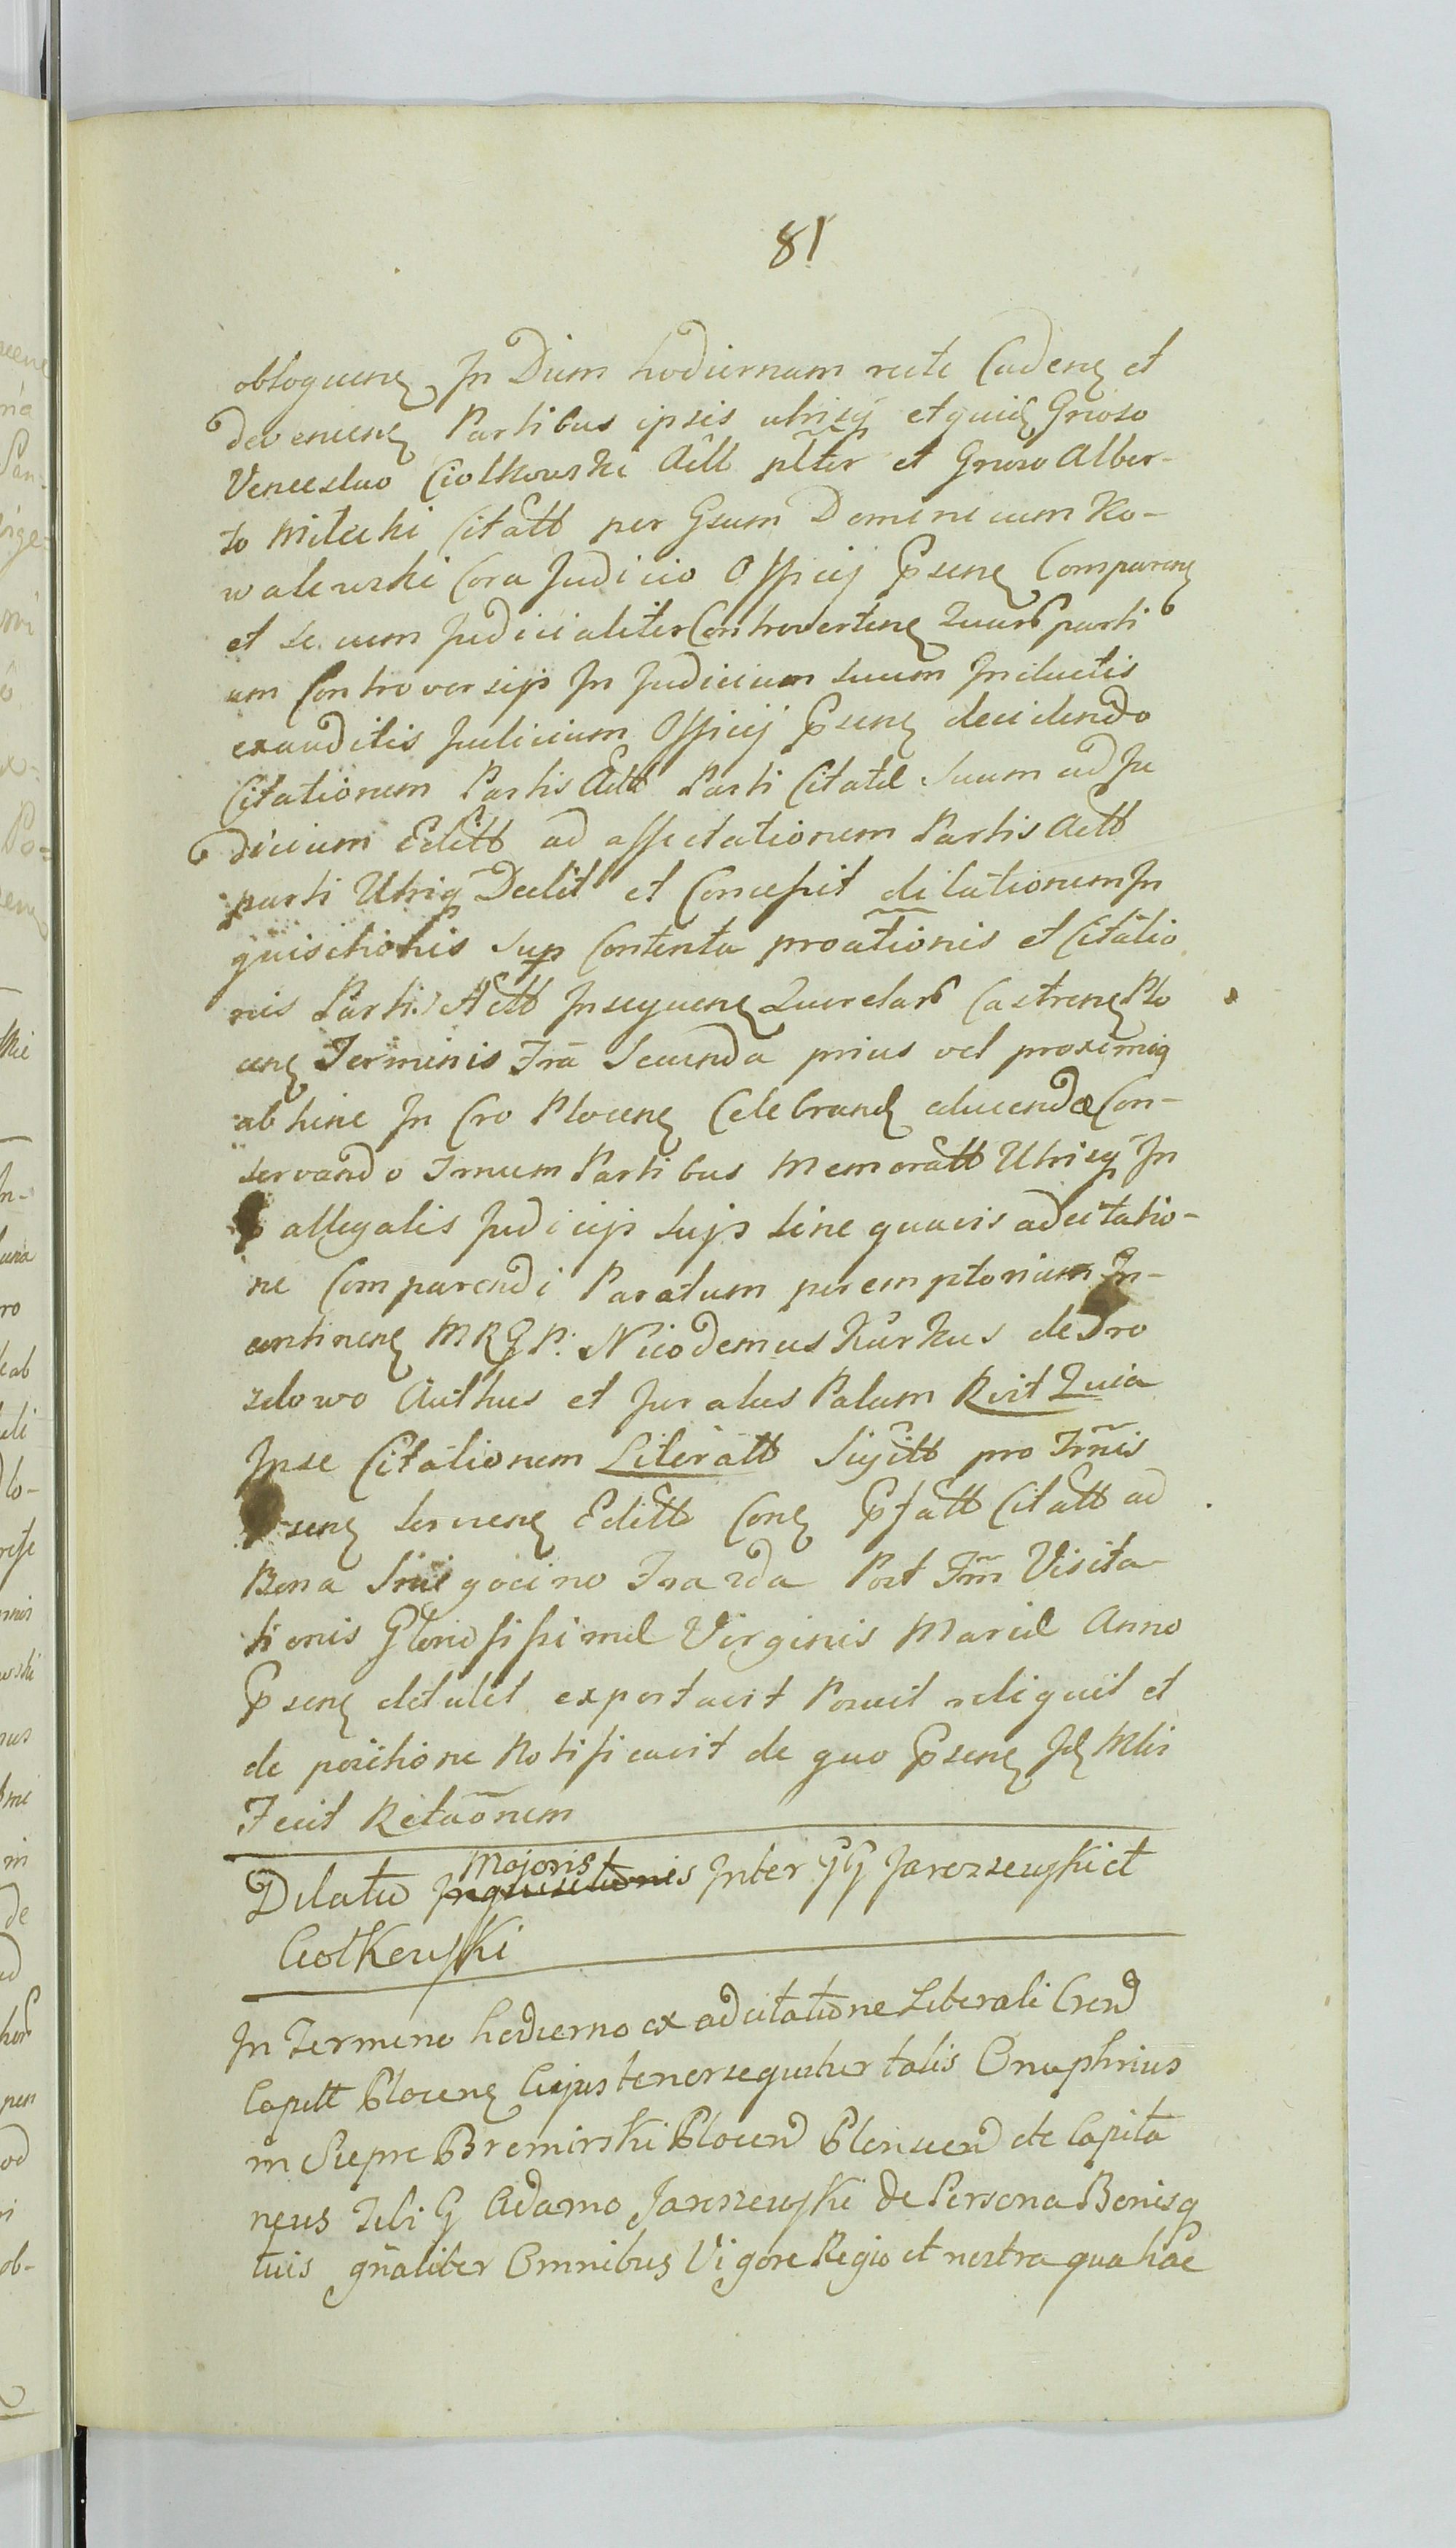 81
obloquenȩ In Diem hodiernam recte Cadenȩ et
deveniene Partibus ipsis utrisq̃ et quidȩ Gnoso
Venceslao Ciołkowski Actt plr̃ et Gnoso Alber-
to Milecki Citatt per Gsum Dominicum Ko-
walewski Cora Judicio Officij Pȓsenȩ Comparenȩ
et secum Judicialiter Controvertenȩ Quarȓ parti
um Controversijs In Judicium suum Inductis
exauditis Judicium Officij Pȓsenȩ decidendo
Citationem Partis Actt Parti Citatæ Suum ad Ju
dicium Editt ad affectationem Partis Actt
parti Utriq̃ Dedit et Concessit dilationem In
quisitionis Sup Contenta proãtionis et Citatio
nis Partis Actt Insequenȩ Querelarȓ Castrenȩ Plo
cenȩ Terminis Fria Secunda prius vel proximiq
abhinc In Cro Plocenȩ Celebranȩ educendæ Con-
servando Tmum Partibus Memoratt Utrisq̃ In
allegatis Judicijs sujs sine quavis adcitatio-
ne Comparendi Paratum peremptorium In-
continenȩ MRGP: Nicodemus Kurkus de Dro
zdowo Authus et Juratus Palam Rvit Quia
Inse Citationem Literatt Sigitt pro Tmnis
senȩ servienȩ Editt Conȩ Pȓfatt Citatt ad
Bona Sniegocino Fraȝda Post Fm̃ Visita-
tionis Gloriosissimæ Virginis Mariæ Anno
Pȓsenȩ detulit exportavit Posuit reliquit et
de positione Notificavit de quo Pȓsenȩ Jdȩ Mlis
Fecit Relaõnem
Dilatio Majoris Inquisitionis Inter GG Jarozewski et
Ciołkowski
In Termino hodierno ex adcitatione Literali Cren
Capitt Plocenȩ Cujus tenor sequitur talis Onuphrius
in Sierpc Bromirski Plocen Plonscen etc Capita
neus Tibi G Adamo Jarozewski de Persona Bonisq
tuis gñaliter Omnibus Vigore Regio et nostra qua hac